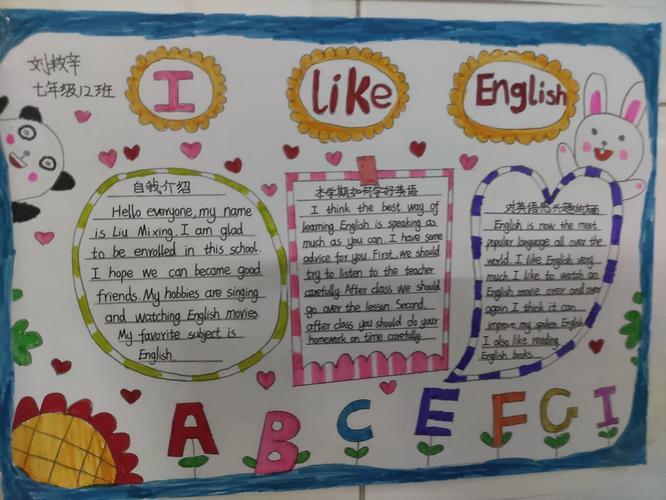 刘
七年级12班
I
like
English
自我介绍
Hello everyone, my name
is Liu Mixing. I am glad
to be enrolled in this school.
I hope we can become good
friends. My hobbies are singing
and watching English movies.
My favorite subject is
English.
本学期如何学好英语
I think the best way of
learning English is speaking as
much as you can. I have some
advice for you. First, we should
try to listen to the teacher
carefully. After class we should
go over the lesson. Second,
after class you should do your
homework on time carefully.
对英语感兴趣的
English is now the most
popular language all over the
world. I like English very
much. I like to watch an
English movie over and over
again. I think it can
improve my spoken English.
I also like reading
English books.
A B C E F G I